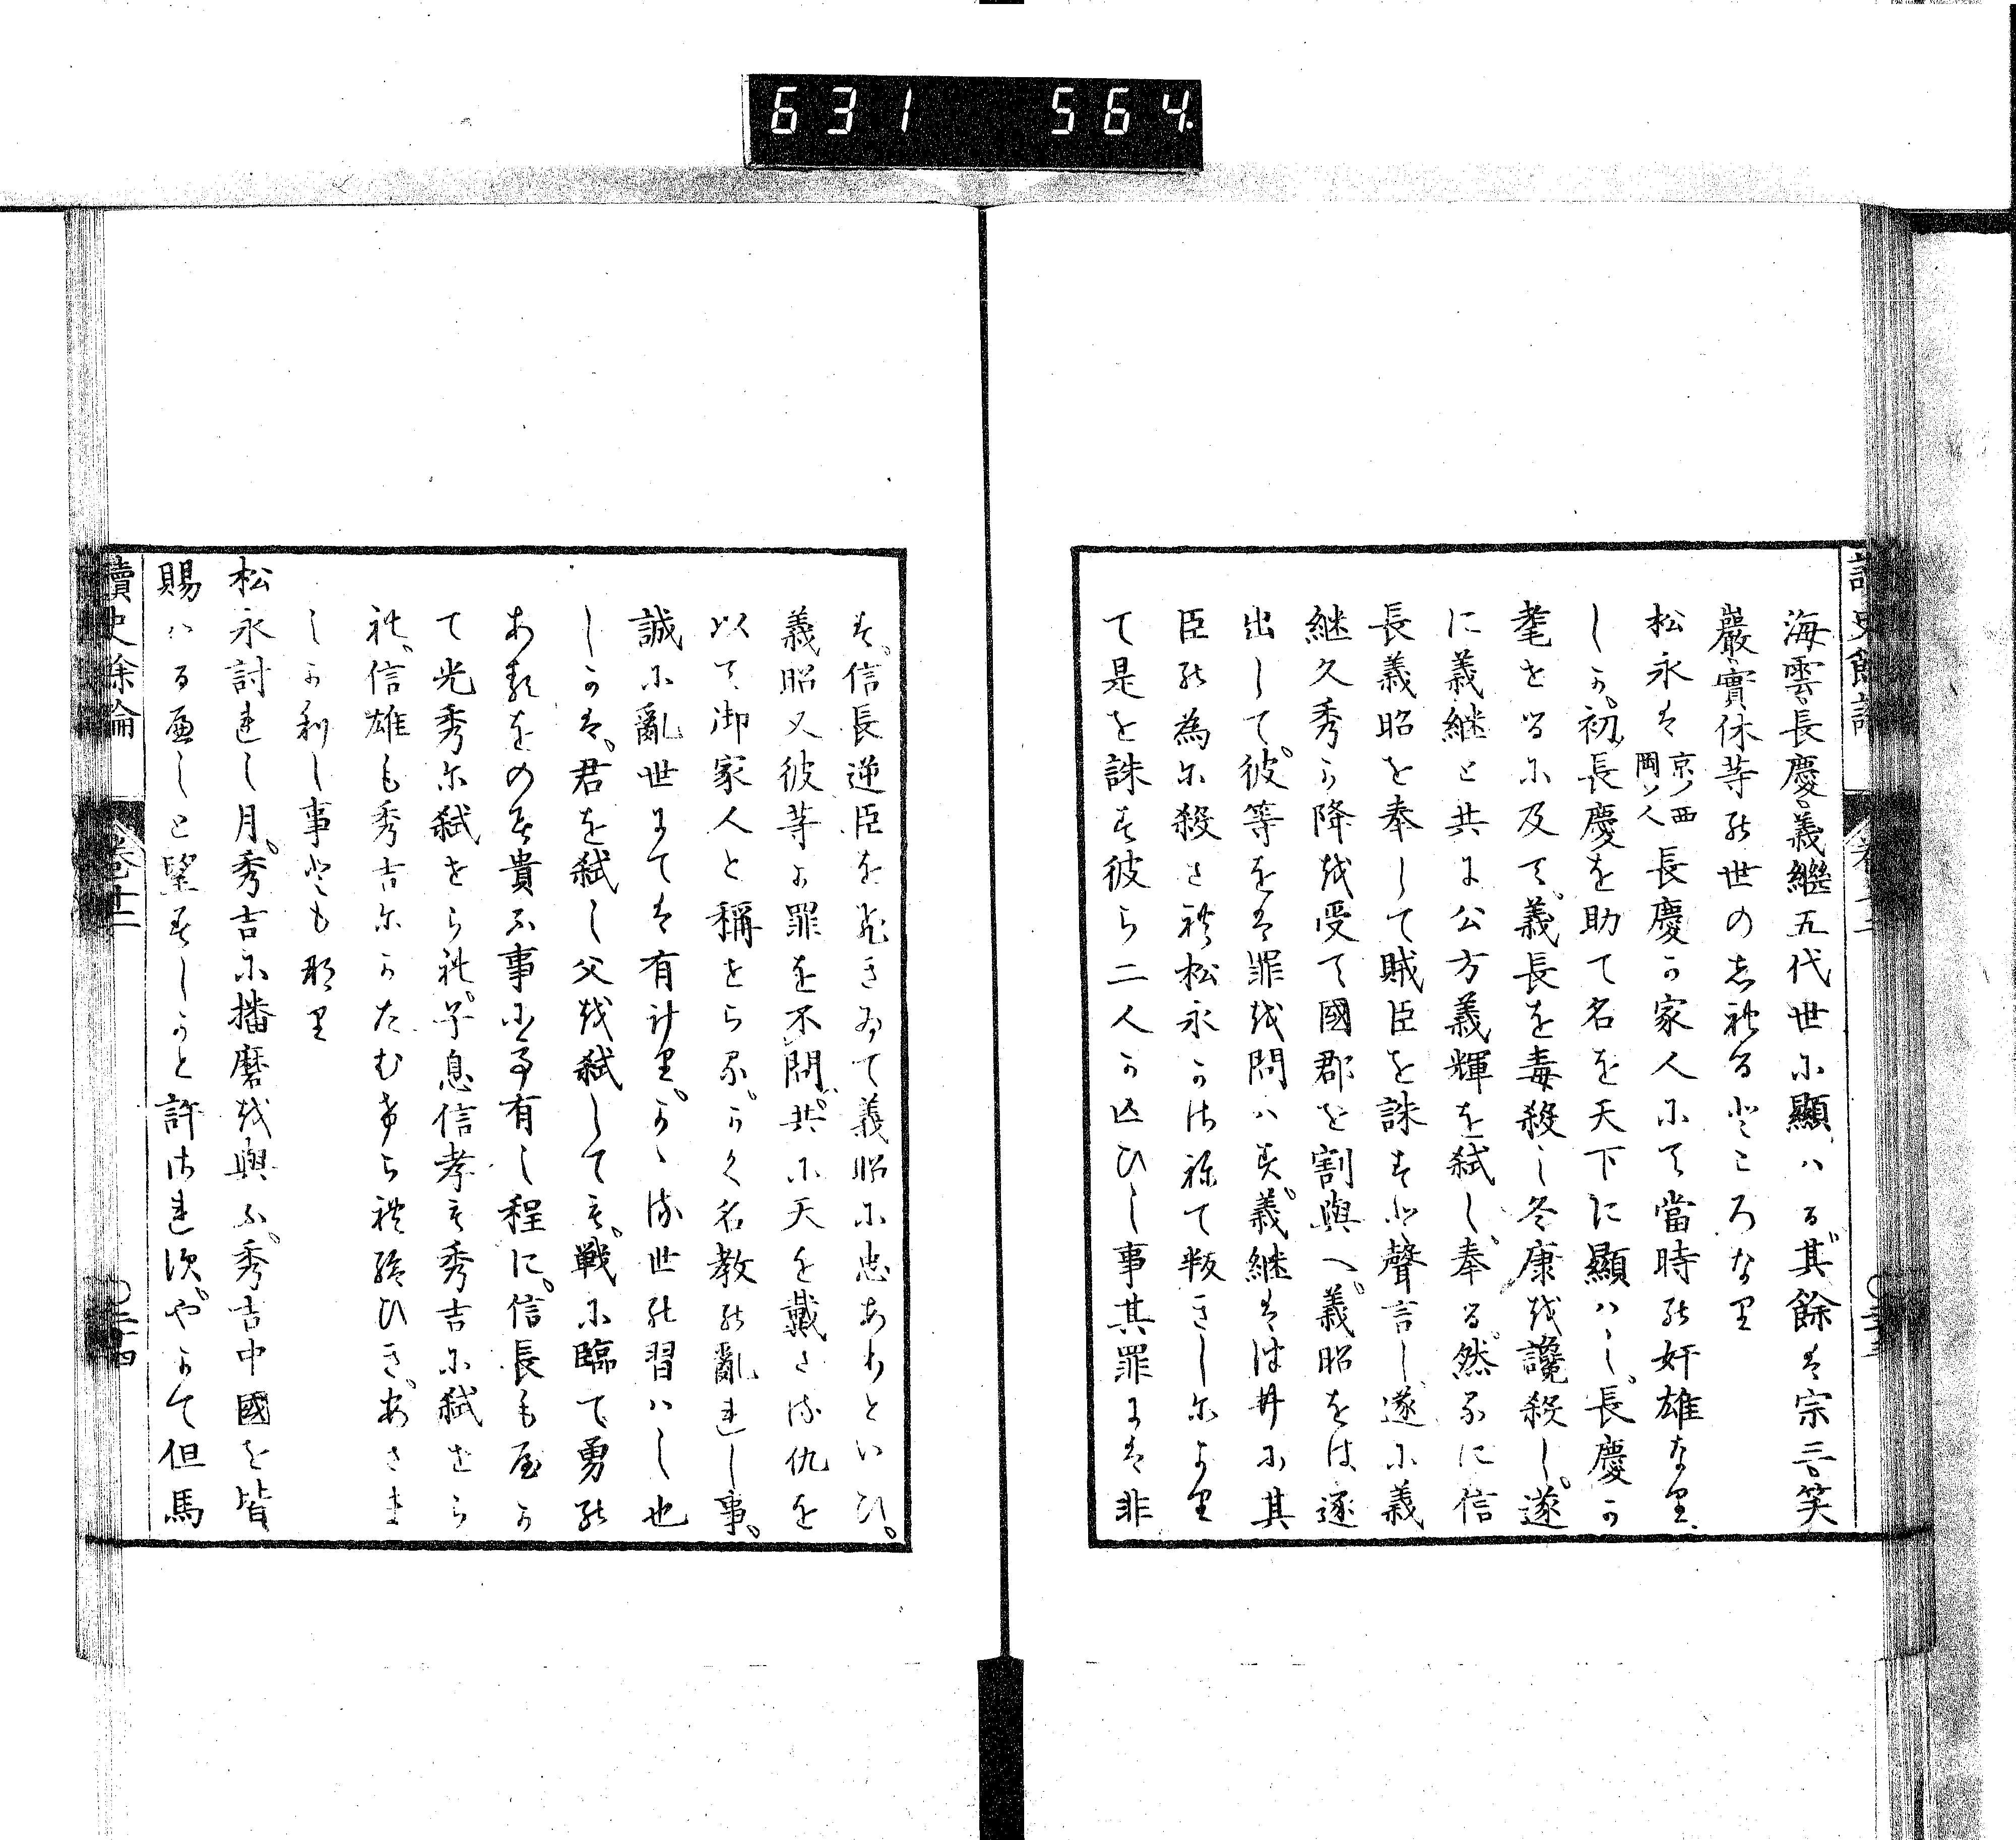 631 564
海雲長慶義継五代世に顯ハる其餘は宗三笑
巖實休等の世のしれるところなり
松永は京ノ西岡ノ人長慶か家人にて當時の奸雄なり
しか初長慶を助て名を天下に顯ハし長慶か
耄をるに及て義長を毒殺し冬康を讒殺し遂
に義継と共に公方義輝を弑し奉る然るに信
長義昭を奉して賊臣を誅すと聲言し遂に義
継久秀か降を受て國郡を割與へ義昭をは逐
出して彼等をは罪を問ハす義継は津井に其
臣の為に殺され松永かかねて叛きしにより
て是を誅す彼ら二人か亡ひし事其罪には非
す信長逆臣を引きゐて義昭に忠ありといひ
義昭又彼等か罪を不問共に天を戴さる仇を
以て御家人と稱せらるかく名教の亂れし事
誠に亂世にては有けりかゝる世の習ハし也
しかは君を弑し父を弑しても戦に臨て勇の
あるをのみ貴ふ事にて有し程に信長も屋か
て光秀に弑せられ子息信孝も秀吉に弑せら
れ信雄も秀吉にかたむけられ給ひきあさま
しかりし事ともなり
松永討れし月秀吉に播磨を與ふ秀吉中國を皆
賜ハるへしと望みしかと許されすやかて但馬
讀史餘論
卷十二
三十四